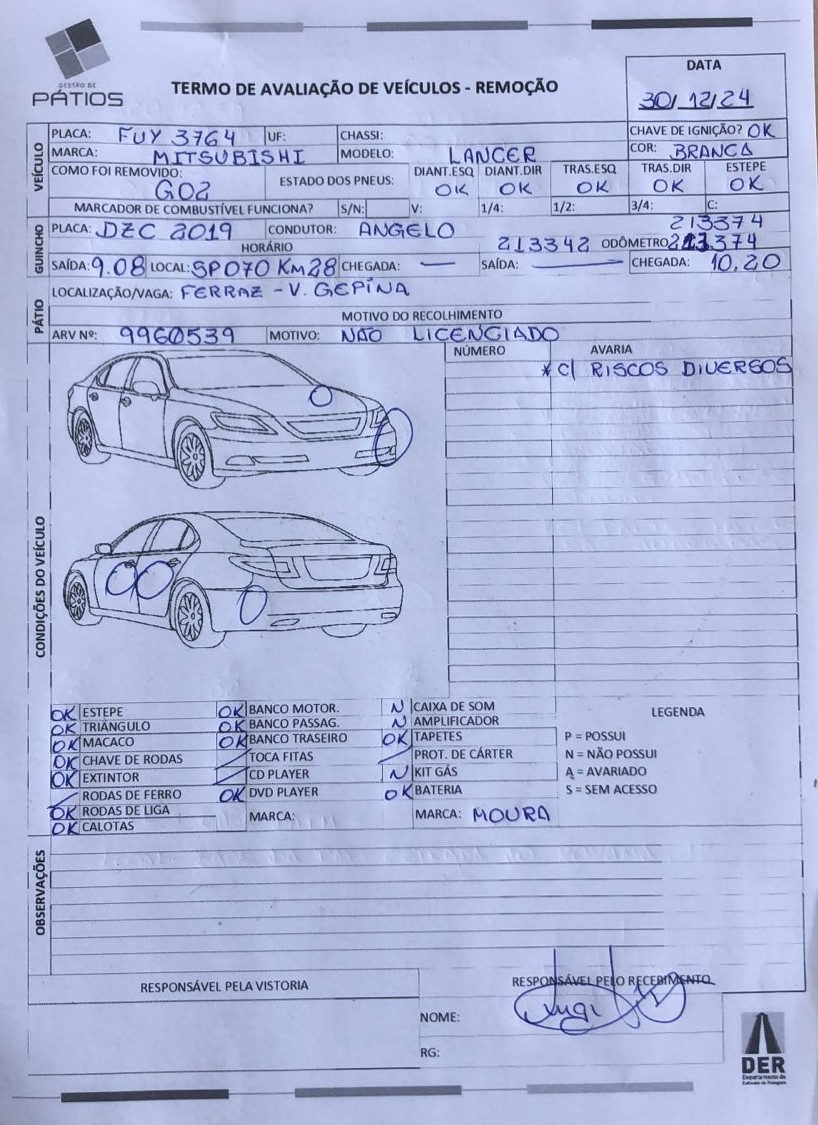 GESTÃO DE
PÁTIOS
TERMO DE AVALIAÇÃO DE VEÍCULOS - REMOÇÃO
DATA
30/12/24
VEÍCULO
PLACA: FUY 3764 UF: CHASSI: CHAVE DE IGNIÇÃO? OK
MARCA: MITSUBISHI MODELO: LANCER COR: BRANCA
COMO FOI REMOVIDO: G02 ESTADO DOS PNEUS: DIANT.ESQ OK DIANT.DIR OK TRAS.ESQ OK TRAS.DIR OK ESTEPE OK
MARCADOR DE COMBUSTÍVEL FUNCIONA? S/N: V: 1/4: 1/2: 3/4: C:
GUINCHO
PLACA: DZC 2019 CONDUTOR: ANGELO 213374
HORÁRIO 213342 ODÔMETRO 213374
SAÍDA: 9.08 LOCAL: SP070 KM28 CHEGADA: — SAÍDA: — CHEGADA: 10,20
PÁTIO
LOCALIZAÇÃO/VAGA: FERRAZ - V. GEPINA
MOTIVO DO RECOLHIMENTO
ARV Nº: 9960539 MOTIVO: NÃO LICENCIADO
CONDIÇÕES DO VEÍCULO
NÚMERO AVARIA
* C/ RISCOS DIVERSOS
OK ESTEPE OK BANCO MOTOR. N CAIXA DE SOM LEGENDA
OK TRIÂNGULO OK BANCO PASSAG. N AMPLIFICADOR
OK MACACO OK BANCO TRASEIRO OK TAPETES P = POSSUI
OK CHAVE DE RODAS TOCA FITAS PROT. DE CÁRTER N = NÃO POSSUI
OK EXTINTOR CD PLAYER N KIT GÁS A = AVARIADO
RODAS DE FERRO OK DVD PLAYER OK BATERIA S = SEM ACESSO
OK RODAS DE LIGA MARCA: MARCA: MOURA
OK CALOTAS
OBSERVAÇÕES
RESPONSÁVEL PELA VISTORIA RESPONSÁVEL PELO RECEBIMENTO
NOME:
RG:
DER
Departamento de
Estradas de Rodagem